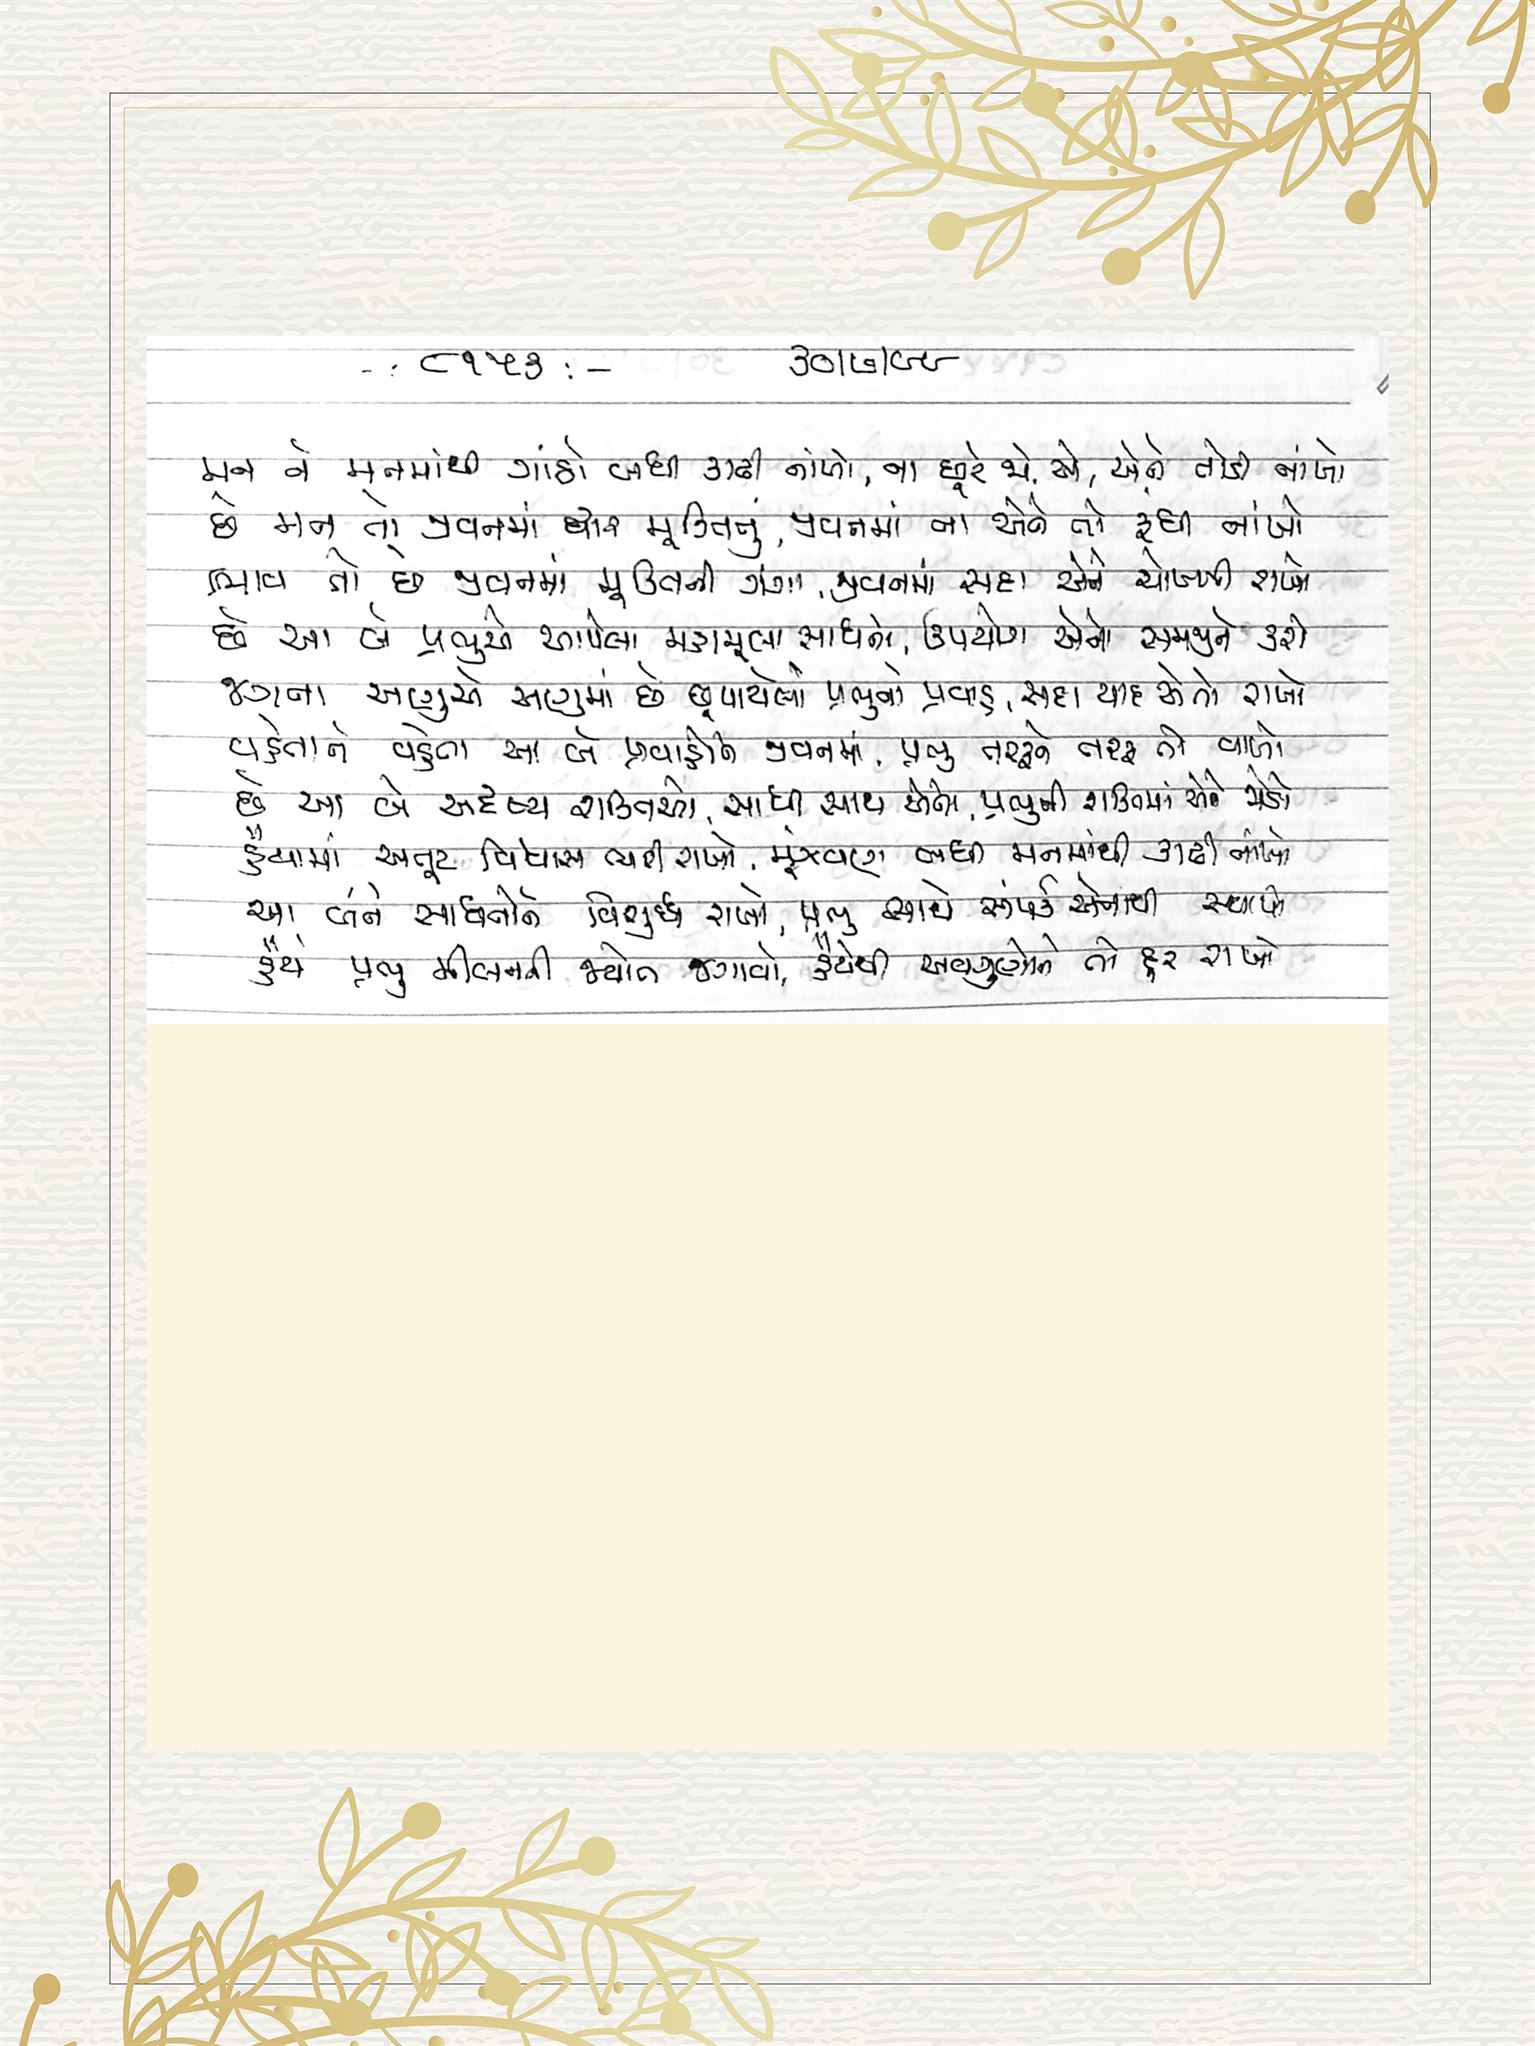 -: ૮૧૫૩ :- ૩૦/૭/૯૯
મન ને મનમાંથી ગાંઠો બધી કાઢી નાંખો, ના છૂટે જે, એ, એને તોડી નાંખો
છે મન તો જીવનમાં દ્વાર મૂક્તિનું, જીવનમાં ના એને તો રૂંધી નાંખો
ભાવ તો છે જીવનમાં મૂક્તિની ગંગા, જીવનમાં સદા એને ચોખ્ખી રાખો
છે આ બે પ્રભુએ આપેલા મહામૂલા સાધનો, ઉપયોગ એનો સમજીને કરો
જગના અણુએ અણુમાં છે છૂપાયેલો પ્રભુનો પ્રવાહ, સદા યાદ એ તો રાખો
વહેતાને વહેતા આ બે પ્રવાહોને જીવનમાં, પ્રભુ તરફને તરફ તો વાળો
છે આ બે અદૃષ્ય શક્તિઓ, સાધી સાથ એનો, પ્રભુની શક્તિમાં એને જોડો
હૈયામાં અતૂટ વિશ્વાસ ભરી રાખો, મૂંઝવણ બધી મનમાંથી કાઢી નાંખો
આ બંને સાધનોને વિશુધ્ધ રાખો, પ્રભુ સાથે સંપર્ક એનાથી સ્થાપો
હૈયે પ્રભુ મીલનની જ્યોત જગાવો, હૈયેથી અવગુણોને તો દૂર રાખો